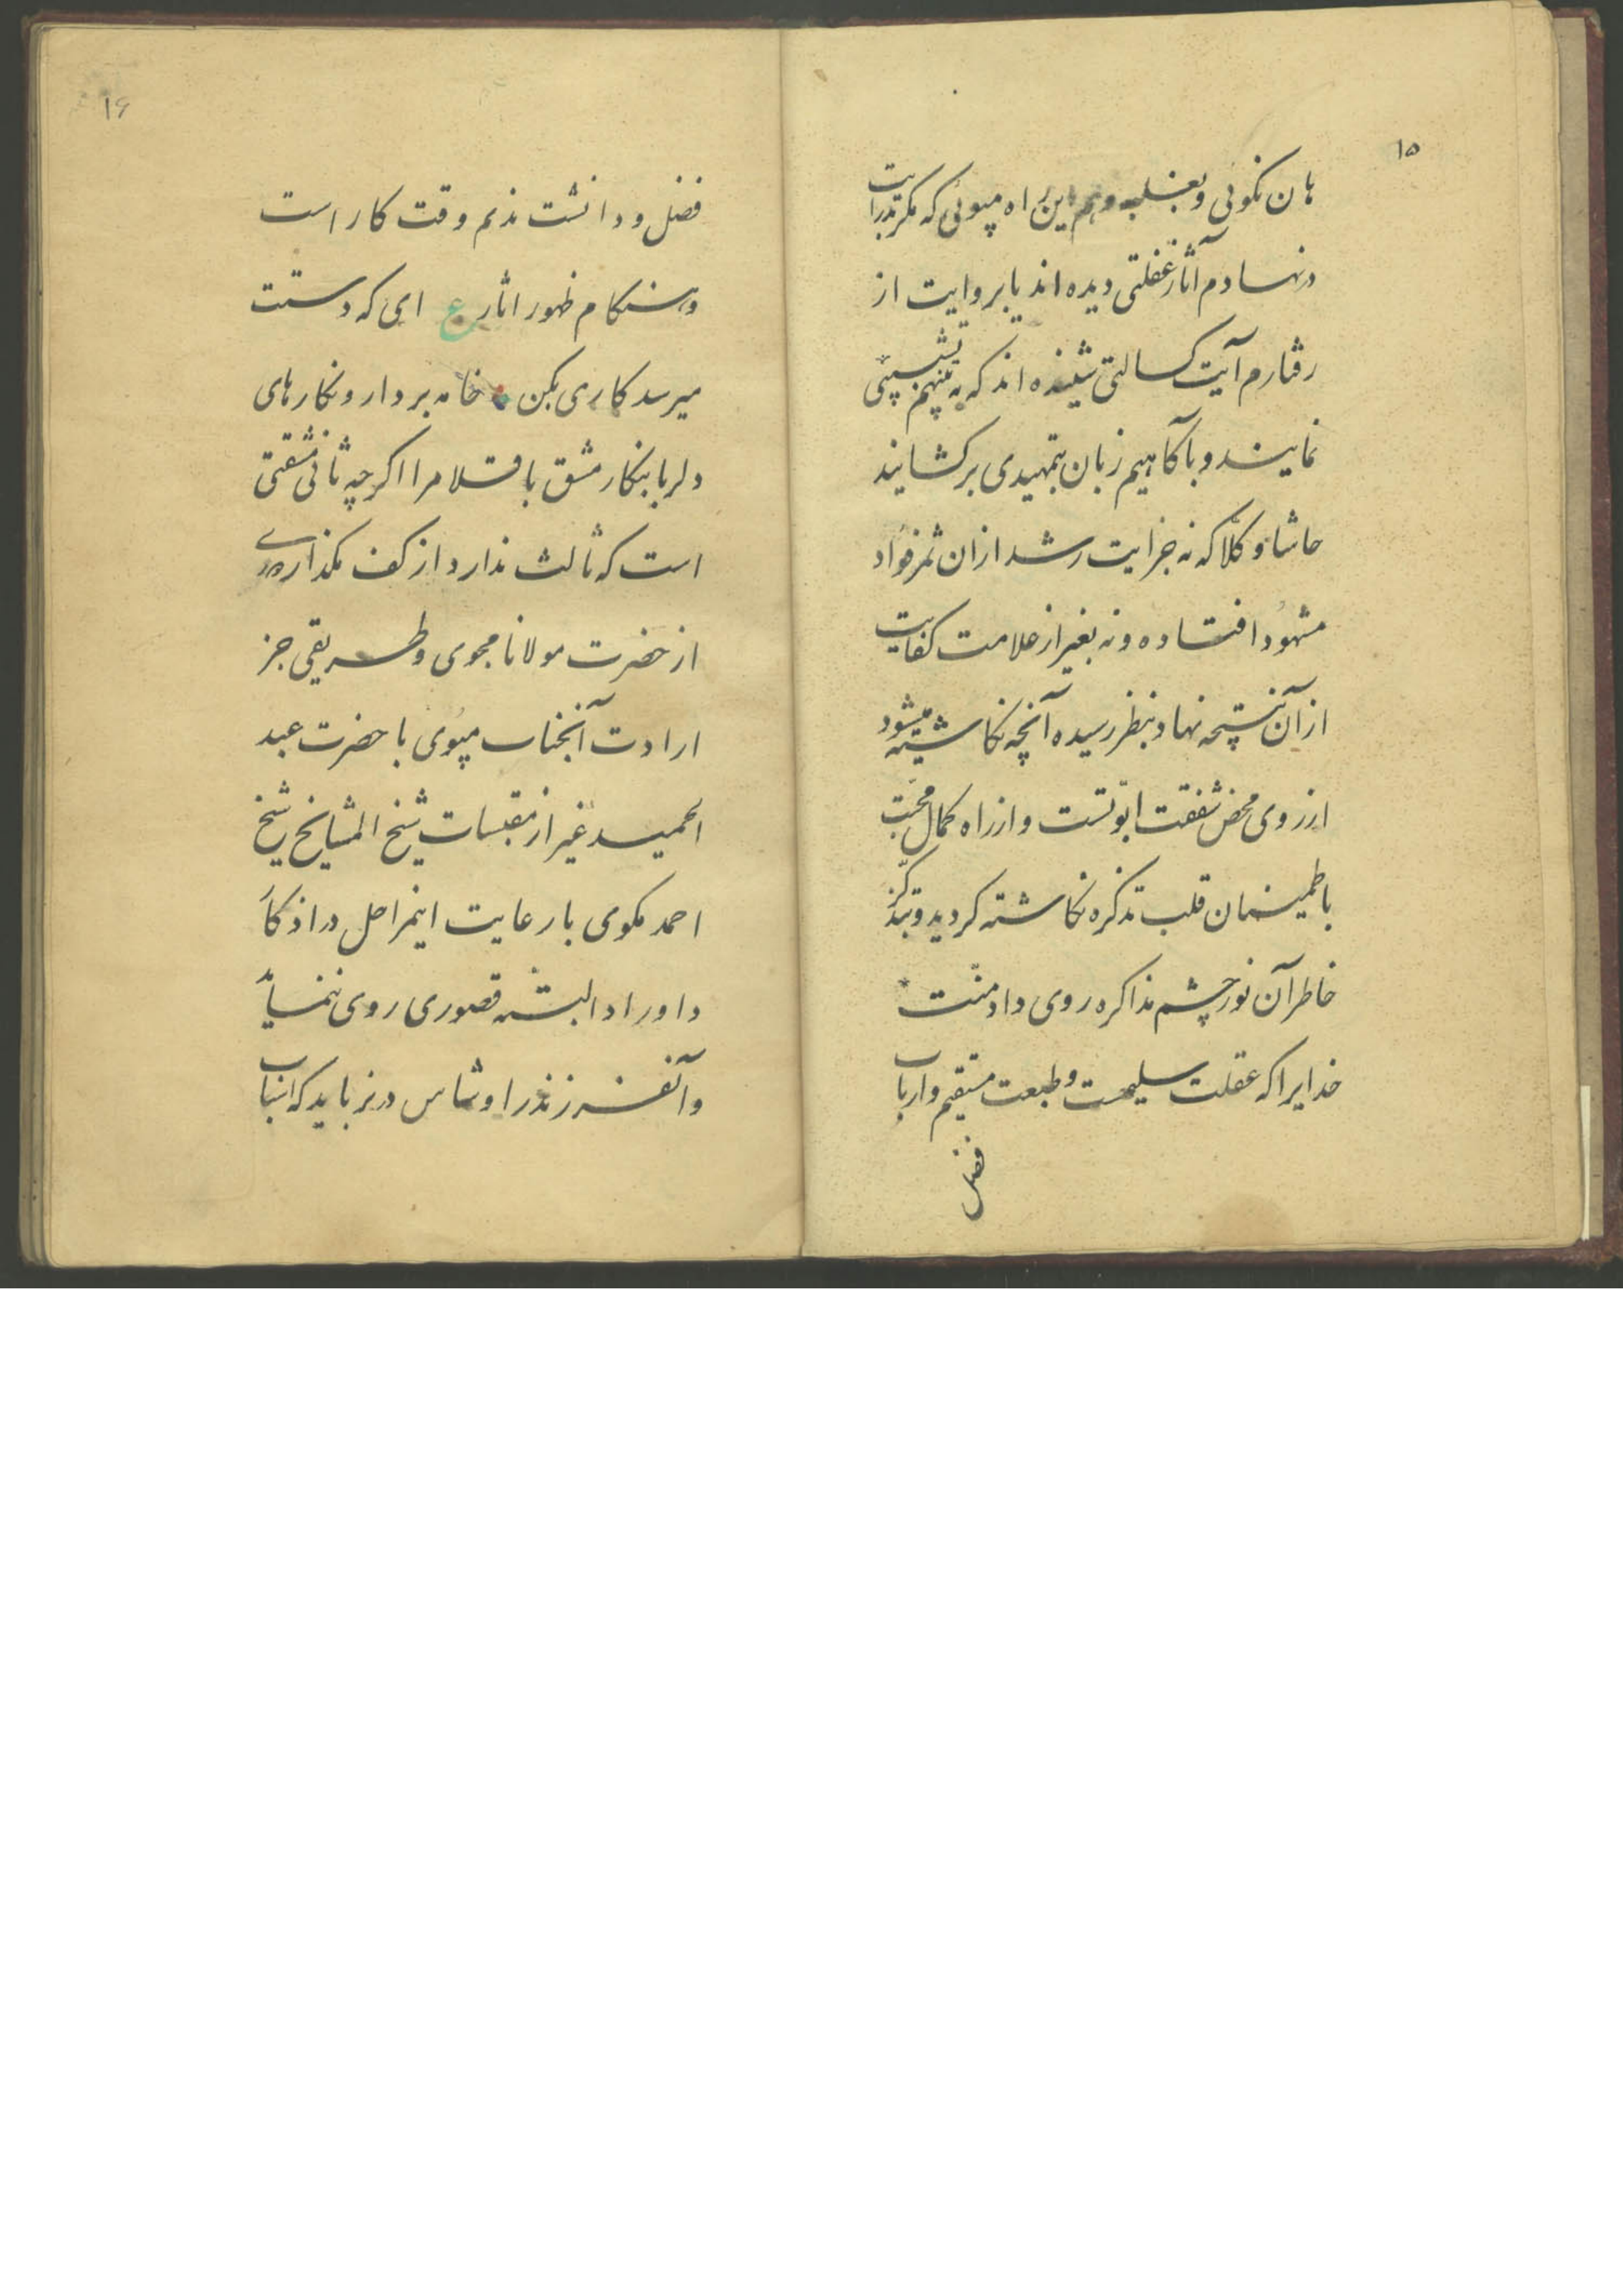 ۱۵
هان نکوئی و بغلبه وهم این راه مپوئی که مکر بدرایت
در نهادم آثار غفلتی دیده اند یا بروایت از
رفتارم آیت کسالتی شینده اند که به تنبیهم تشبیبی
نمایند و با آکاهیم زبان بتمهیدی برکشایند
حاشا و کلّا که نه جز ایت رشد ازان ثمر فؤاد
مشهود افتاده و نه بغیر از علامت کفایت
از آن نتیجه نهاد بنظر رسیده آنچه نکاشته میشود
از روی محض شفقت ابوّتست و از راه کمال محبّت
باطمینان قلب تذکره نکاشته کردید و بتذکّر
خاطر آن نور چشم مذاکره روی داد منّت
خدایرا که عقلت سلیمست و طبعت مستقیم و ارباب
فضل
۱۶
فضل و دانشت ندیم وقت کار است
و هنکام ظهور اثار ع ای که دستت
میرسد کاری بکن خامه بردار و نکارهای
دلربا بنکار مشق باقلام را اکرچه ثانی مشقتی
است که ثالث ندارد از کف مکذار
از حضرت مولانا مجوی و طریقی جز
ارادت آنجناب مپوی با حضرت عبد
الحمید غیر از مقتبسات شیخ المشایخ شیخ
احمد مکوی با رعایت اینمراحل در اذکار
و اوراد البته قصوری روی ننماید
و آنفرزند را وشاس در نرباید که اسباب